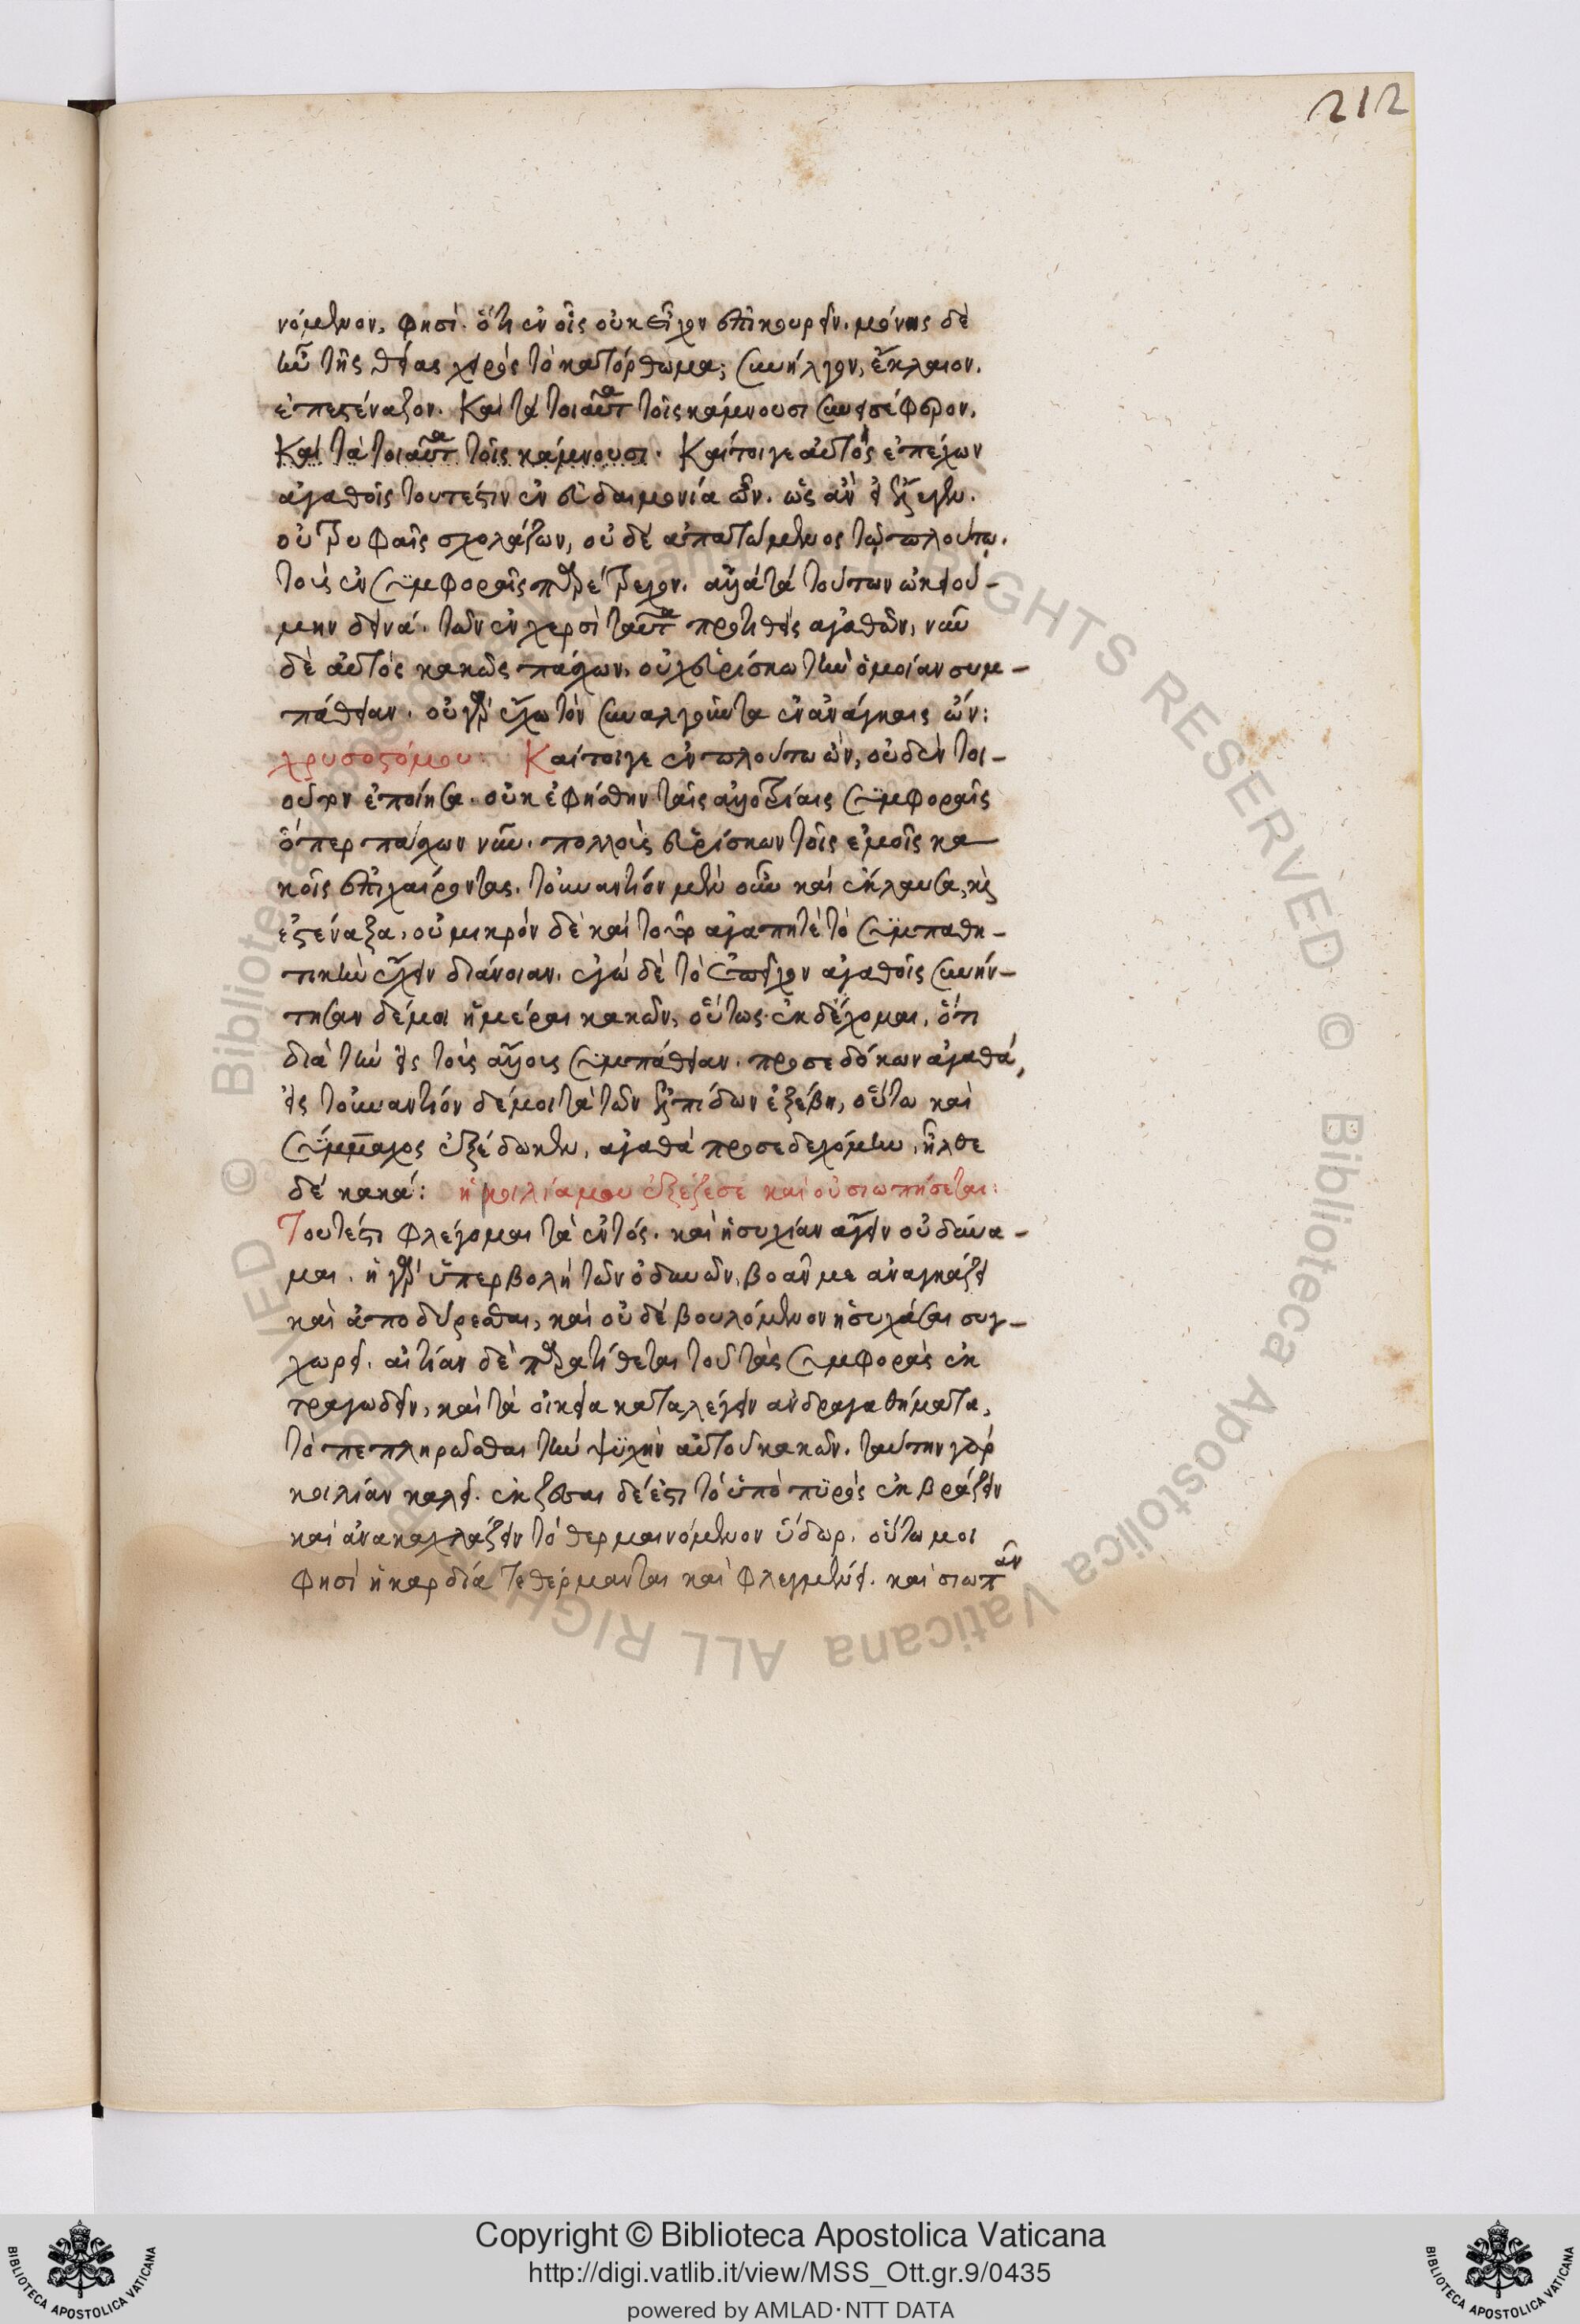 212
νόμενον, φησὶ. ὅτι ἐν οἷς οὐκ εἶχον ἐπικουρεῖν. μόνης δὲ
ἦν τῆς θείας χειρὸς τὸ κατόρθωμα; συνήλγουν, ἔκλαιον.
ἐπεστέναζον. Καὶ τὰ τοιαῦτα τοῖς κάμνουσι συνεισέφερον.
Καὶ τὰ τοιαῦτα τοῖς κάμνουσι. Καίτοιγε αὐτὸς ἐπέχων
ἀγαθοῖς τουτέστιν ἐν εὐδαιμονία ὢν. ὡς ἂν εἰ ἔλεγεν.
οὐ τρυφαῖς σχολάζων, οὐδὲ ἀπατώμενος τῷ πλούτῳ.
τοὺς ἐν συμφοραῖς παρέτρεχον. ἀλλὰ τὰ τούτων ὠκειού-
μην δεινά. τῶν ἐν χερσὶ ταῦτα προτιθεὶς ἀγαθῶν, νῦν
δὲ αὐτὸς κακῶς πάσχων, οὐχ εὑρίσκω τὴν ὁμοίαν συμ-
πάθειαν. οὐ γὰρ ἔχω τὸν συναλγοῦντα ἐν ἀνάγκαις ὤν:
χρυσοστόμου: Καίτοιγε ἐν πλούτω ὢν, οὐδὲν τοι-
οῦτον ἐποίησα. οὐκ ἐφήσθην ταῖς ἀλλοτρίαις συμφοραῖς
ὅπερ πάσχων νῦν. πολλοὺς εὑρίσκων τοῖς ἐμοῖς κα
κοῖς ἐπιχαίροντας. τοὐναντίον μὲν οὖν καὶ ἔκλαυσα, καὶ
ἐστέναξα, οὐ μικρὸν δὲ καὶ τοῦτο ἀγαπητὲ τὸ συμπαθη-
τικὴν ἔχειν διάνοιαν. ἐγὼ δὲ τὸ ἐπεῖχον ἀγαθοῖς συνήν-
τησαν δέ μοι ἡμέραι κακῶν, οὕτως ἐκδέχομαι, ὅτι
διὰ τὴν εἰς τοὺς ἄλλους συμπάθειαν. προσεδόκων ἀγαθά,
εἰς τοὐναντίον δέ μοι τὰ τῶν ἐλπίδων ἐξέβη, οὕτω καὶ
σύμμαχος ἐξέδωκεν, ἀγαθὰ προσεδεχόμην, ἦλθε
δὲ κακά: ἡ κοιλία μου ἐξέζεσε καὶ οὐ σιωπήσεται:
Τουτέστι φλέγομαι τὰ ἐντός. καὶ ἡσυχίαν ἄγειν οὐ δύνα-
μαι. ἡ γὰρ ὑπερβολὴ τῶν ὀδυνῶν, βοᾶν με ἀναγκάζει
καὶ ἀποδύρεσθαι, καὶ οὐδὲ βουλόμενον ἡσυχάσαι συγ-
χωρεῖ. αἰτίαν δὲ παρατίθεται τοῦ τὰς συμφορὰς ἐκ
τραγωδεῖν, καὶ τὰ οἰκεῖα καταλέγειν ἀνδραγαθήματα,
τὸ πεπληρῶσθαι τὴν ψυχὴν αὐτοῦ κακῶν. ταύτην γὰρ
κοιλίαν καλεῖ. ἐκζέσαι δέ ἐστι τὸ ὑπὸ πυρὸς ἐκβράζειν
καὶ ἀνακαχλάζειν τὸ θερμαινόμενον ὕδωρ. οὕτω μοι
φησὶ ἡ καρδία τεθέρμανται καὶ φλεγμαίνει. καὶ σιωπᾶν
© Biblioteca Apostolica Vaticana ALL RIGHTS RESERVED © Biblioteca Apostolica Vaticana ALL RIGHTS RESERVED
BIBLIOTECA APOSTOLICA VATICANA
Copyright © Biblioteca Apostolica Vaticana
http://digi.vatlib.it/view/MSS_Ott.gr.9/0435
powered by AMLAD·NTT DATA
BIBLIOTECA APOSTOLICA VATICANA